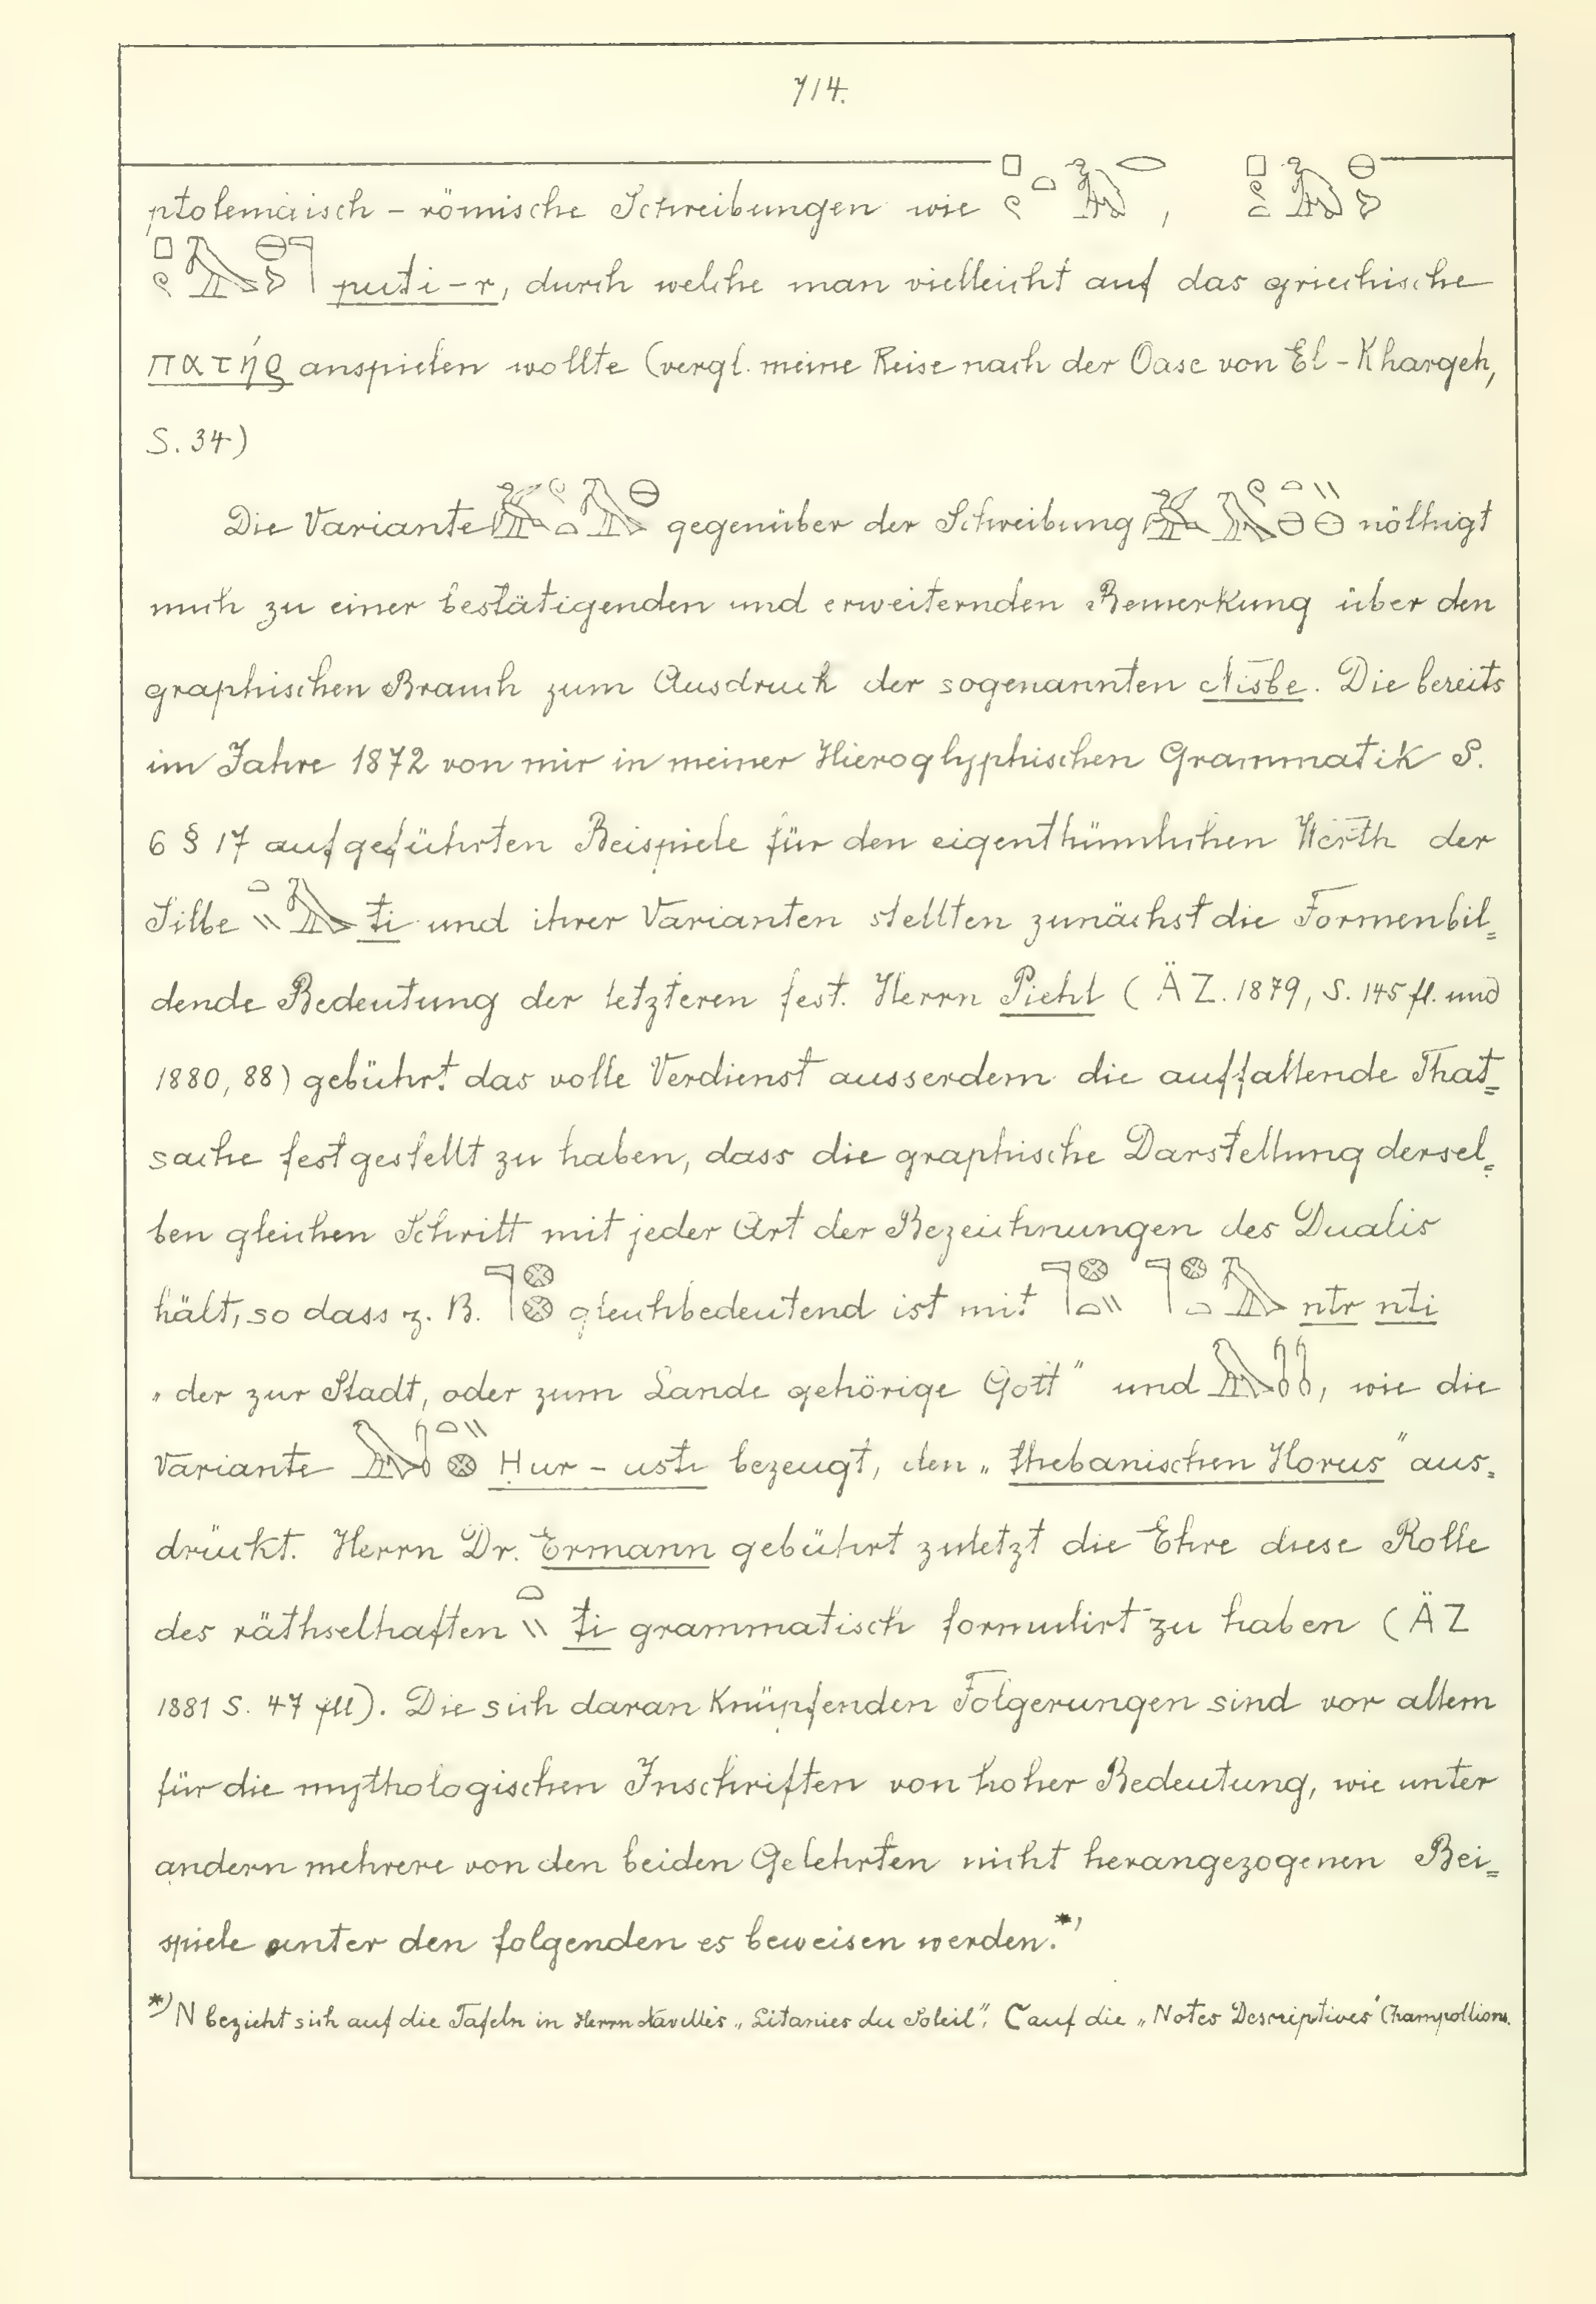 714.
ptolemäisch - römische Schreibungen wie ,
puti-r, durch welche man vielleicht auf das griechische
πατήρ anspielen wollte (vergl. meine Reise nach der Oase von El-Khargeh,
S. 34)
Die Variante gegenüber der Schreibung nöthigt
mich zu einer bestätigenden und erweiternden Bemerkung über den
graphischen Brauch zum Ausdruck der sogenannten Nisbe. Die bereits
im Jahre 1872 von mir in meiner Hieroglyphischen Grammatik S.
6 § 17 aufgeführten Beispiele für den eigenthümlichen Werth der
Silbe ti und ihrer Varianten stellten zunächst die Formenbil=
dende Bedeutung der letzteren fest. Herrn Piehl (ÄZ. 1879, S. 145 fl. und
1880, 88) gebührt das volle Verdienst ausserdem die auffallende That=
sache festgestellt zu haben, dass die graphische Darstellung dersel=
ben gleichen Schritt mit jeder Art der Bezeichnungen des Dualis
hält, so dass z. B. gleichbedeutend ist mit ntr nti
„der zur Stadt, oder zum Lande gehörige Gott" und , wie die
Variante Hur-usti bezeugt, den „thebanischen Horus" aus=
drückt. Herrn Dr. Ermann gebührt zuletzt die Ehre diese Rolle
des räthselhaften ti grammatisch formulirt zu haben (ÄZ
1881 S. 47 fll). Die sich daran knüpfenden Folgerungen sind vor allem
für die mythologischen Inschriften von hoher Bedeutung, wie unter
andern mehrere von den beiden Gelehrten nicht herangezogenen Bei=
spiele unter den folgenden es beweisen werden.*)
*) N bezieht sich auf die Tafeln in Herrn Naville's „Litanies du Soleil", C auf die „Notes Descriptives" Champollions.